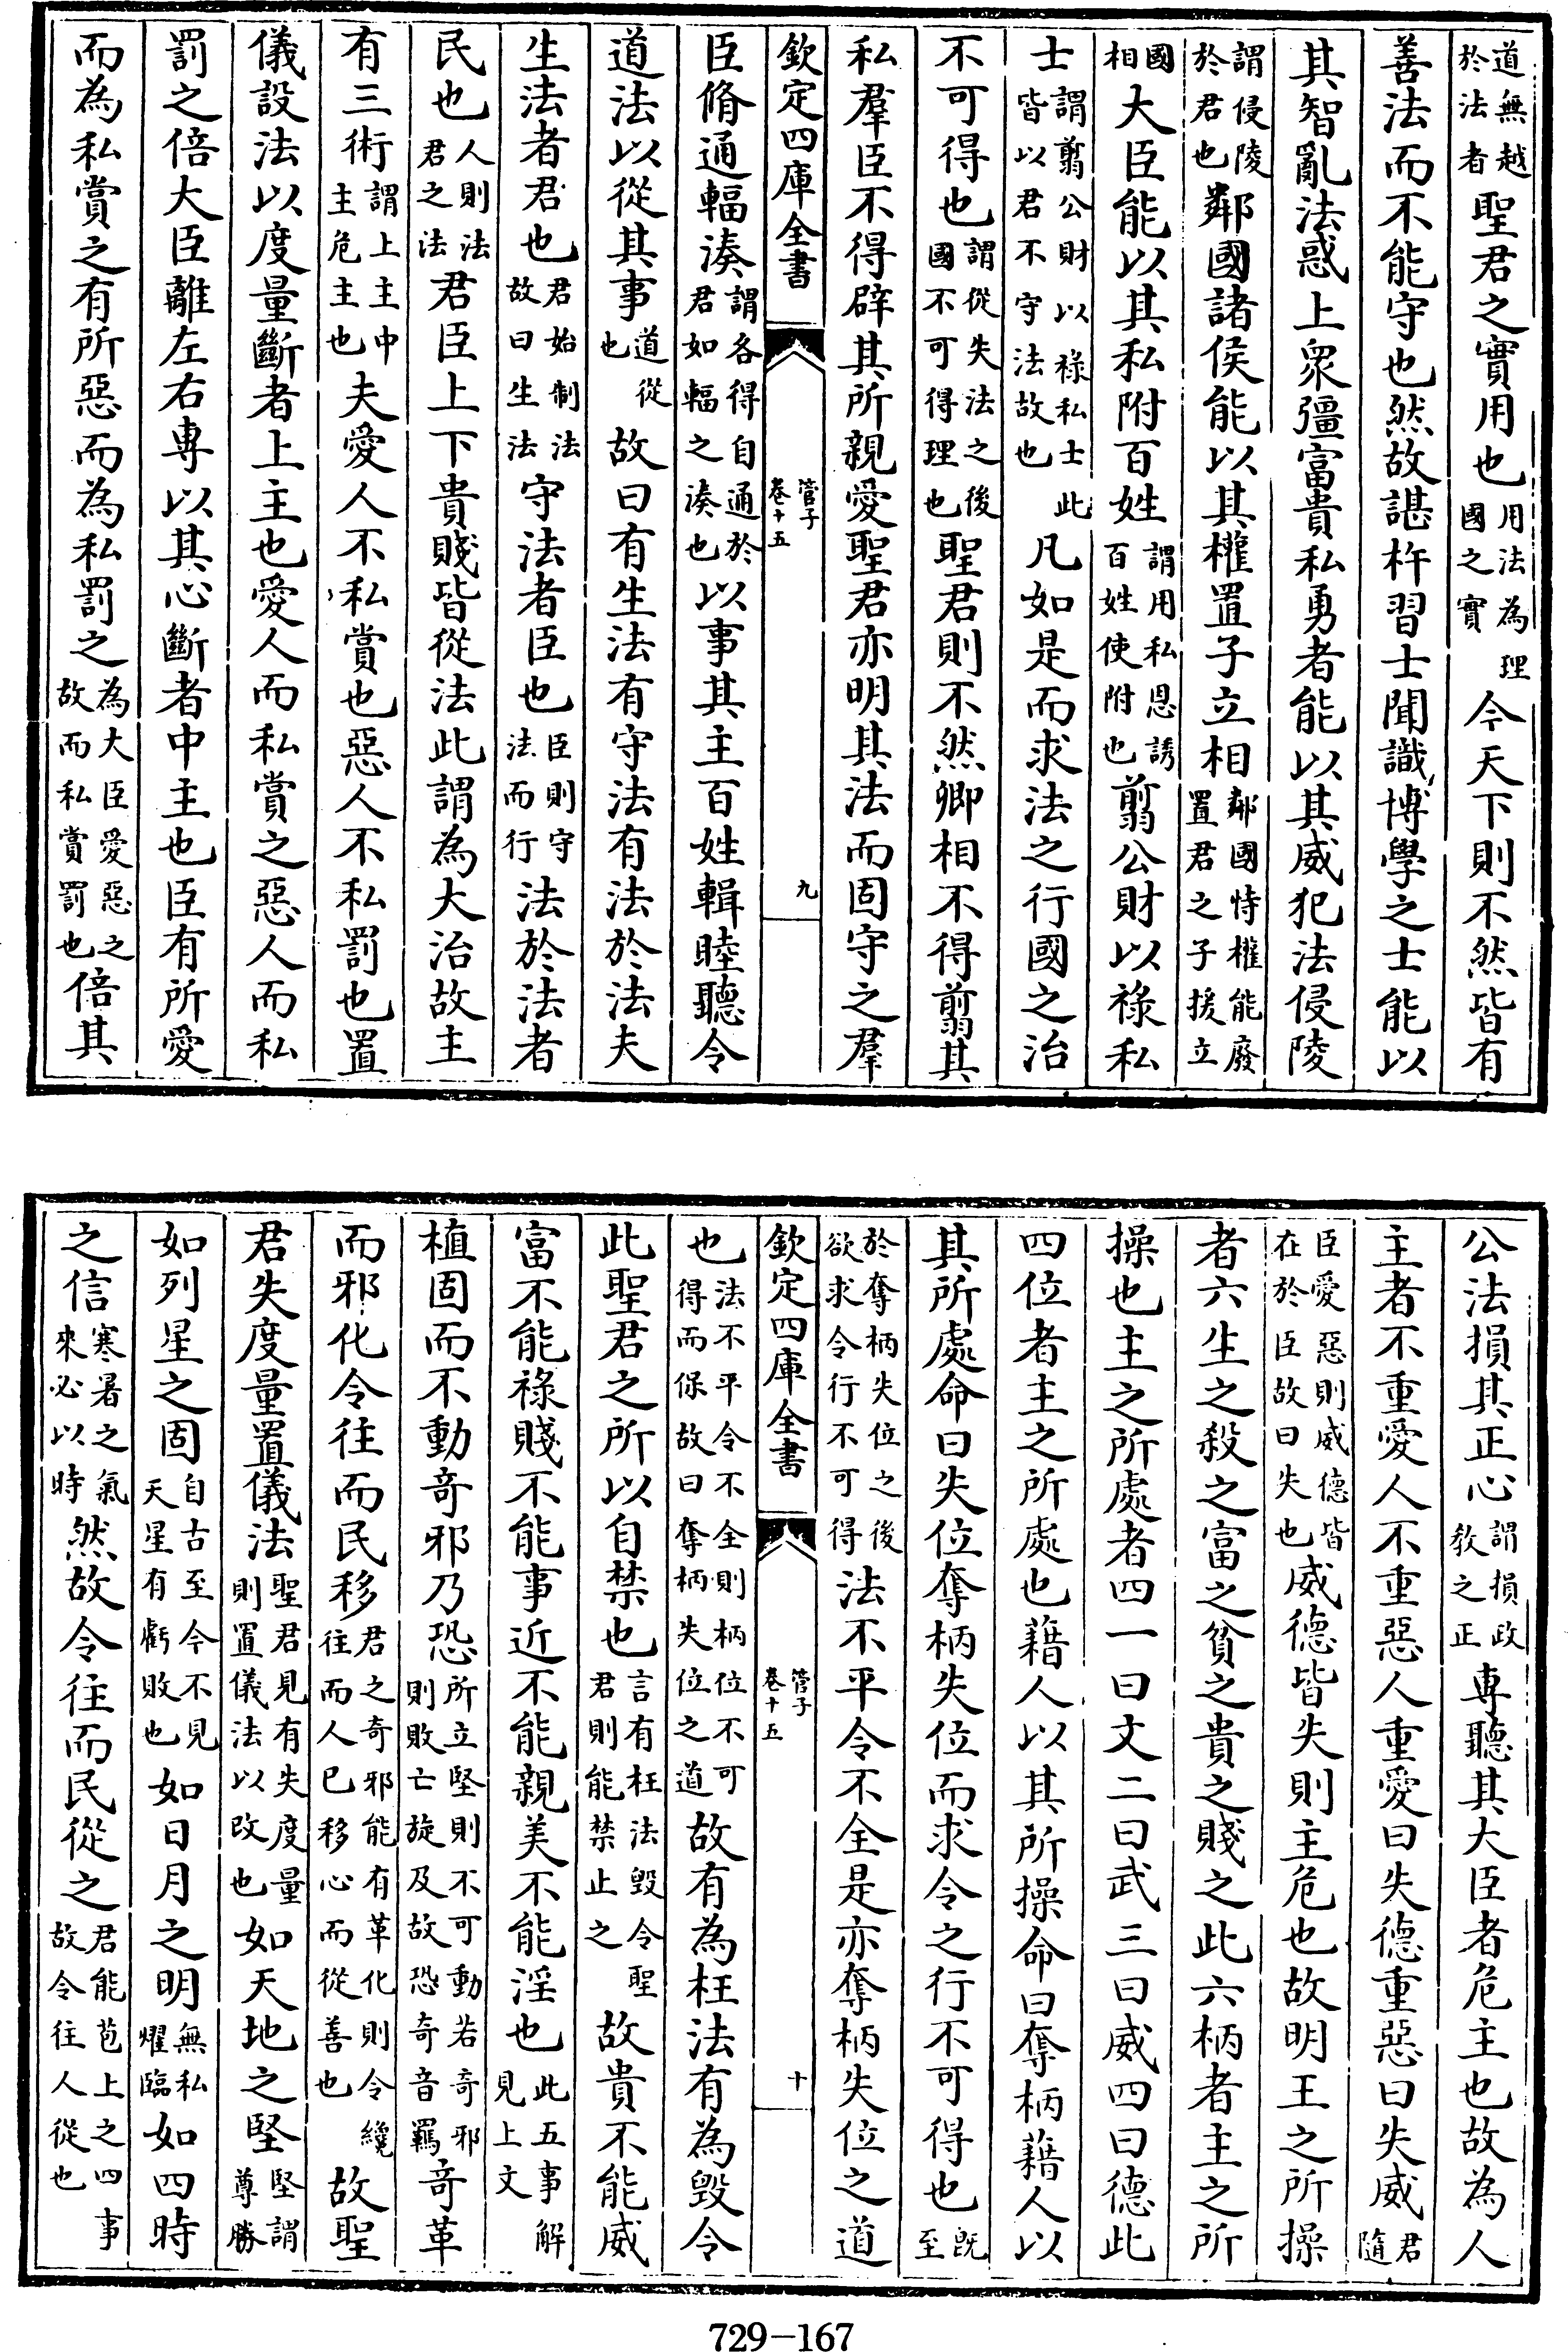 道無越於法者聖君之實用也用法為理國之實今天下則不然皆有
善法而不能守也然故諶杵習士聞識博學之士能以
其智亂法惑上眾彊富貴私勇者能以其威犯法侵陵
謂侵陵於君也鄰國諸侯能以其權置子立相鄰國恃權能廢置君之子援立
國相大臣能以其私附百姓謂用私恩誘百姓使附也翦公財以祿私
士謂翦公財以祿私士此皆以君不守法故也凡如是而求法之行國之治
不可得也謂從失法之後國不可得理也聖君則不然卿相不得翦其
私羣臣不得辟其所親愛聖君亦明其法而固守之羣
欽定四庫全書 管子卷十五 九
臣脩通輻湊謂各得自通於君如輻之湊也以事其主百姓輯睦聽令
道法以從其事道從也故曰有生法有守法有法於法夫
生法者君也君始制法故曰生法守法者臣也臣則守法而行法於法者
民也人則法君之法君臣上下貴賤皆從法此謂為大治故主
有三術謂上主中主危主也夫愛人不私賞也惡人不私罰也置
儀設法以度量斷者上主也愛人而私賞之惡人而私
罰之倍大臣離左右專以其心斷者中主也臣有所愛
而為私賞之有所惡而為私罰之為大臣愛惡之故而私賞罰也倍其
公法損其正心謂損政教之正專聽其大臣者危主也故為人
主者不重愛人不重惡人重愛曰失德重惡曰失威君隨
臣愛惡則威德皆在於臣故曰失也威德皆失則主危也故明王之所操
者六生之殺之富之貧之貴之賤之此六柄者主之所
操也主之所處者四一曰文二曰武三曰威四曰德此
四位者主之所處也藉人以其所操命曰奪柄藉人以
其所處命曰失位奪柄失位而求令之行不可得也旣至
於奪柄失位之後欲求令行不可得法不平令不全是亦奪柄失位之道
欽定四庫全書 管子卷十五 十
也法不平令不全則柄位不可得而保故曰奪柄失位之道故有為枉法有為毀令
此聖君之所以自禁也言有枉法毀令聖君則能禁止之故貴不能威
富不能祿賤不能事近不能親美不能淫也此五事解見上文
植固而不動奇邪乃恐所立堅則不可動若奇邪則敗亡旋及故恐奇音羈奇革
而邪化令往而民移君之奇邪能有革化則令纔往而人已移心而從善也故聖
君失度量置儀法聖君見有失度量則置儀法以改也如天地之堅堅謂尊勝
如列星之固自古至今不見天星有虧敗也如日月之明無私耀臨如四時
之信寒暑之氣來必以時然故令往而民從之君能苞上之四事故令往人從也
729-167